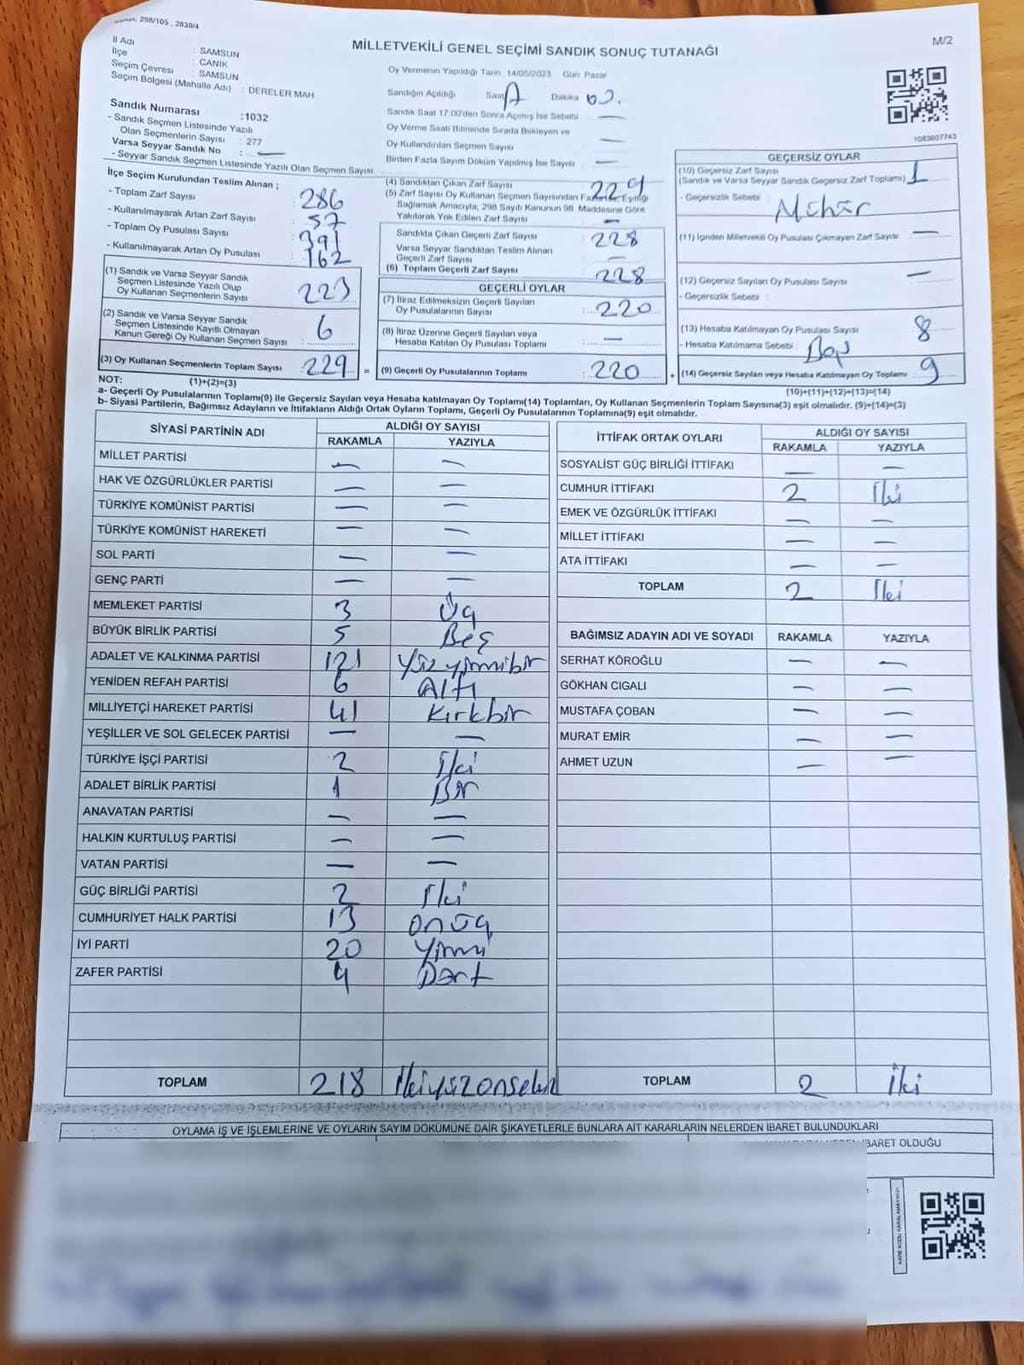 298/105 , 2839/4
MİLLETVEKİLİ GENEL SEÇİMİ SANDIK SONUÇ TUTANAĞI
M/2
İl Adı : SAMSUN
İlçe : CANİK
Seçim Çevresi : SAMSUN
Seçim Bölgesi (Mahalle Adı) : DERELER MAH
Oy Vermenin Yapıldığı Tarih : 14/05/2023 Gün Pazar
Sandığın Açıldığı Saat Dakika
Sandık Saat 17:00'den Sonra Açılmış İse Sebebi —
Oy Verme Saati Bitiminde Sırada Bekleyen ve
Oy Kullandırılan Seçmen Sayısı —
Birden Fazla Sayım Döküm Yapılmış İse Sayısı —
1083607743
Sandık Numarası :1032
- Sandık Seçmen Listesinde Yazılı
Olan Seçmenlerin Sayısı : 277
Varsa Seyyar Sandık No : —
- Seyyar Sandık Seçmen Listesinde Yazılı Olan Seçmen Sayısı
İlçe Seçim Kurulundan Teslim Alınan ;
- Toplam Zarf Sayısı : 286
- Kullanılmayarak Artan Zarf Sayısı : 57
- Toplam Oy Pusulası Sayısı : 391
- Kullanılmayarak Artan Oy Pusulası : 162
(1) Sandık ve Varsa Seyyar Sandık
Seçmen Listesinde Yazılı Olup
Oy Kullanan Seçmenlerin Sayısı : 223
(2) Sandık ve Varsa Seyyar Sandık
Seçmen Listesinde Kayıtlı Olmayan
Kanun Gereği Oy Kullanan Seçmen Sayısı : 6
(3) Oy Kullanan Seçmenlerin Toplam Sayısı : 229 =
(4) Sandıktan Çıkan Zarf Sayısı 229
(5) Zarf Sayısı Oy Kullanan Seçmen Sayısından Fazla İse, Eşitliği
Sağlamak Amacıyla, 298 Sayılı Kanunun 98. Maddesine Göre
Yakılarak Yok Edilen Zarf Sayısı —
Sandıkta Çıkan Geçerli Zarf Sayısı : 228
Varsa Seyyar Sandıktan Teslim Alınan
Geçerli Zarf Sayısı —
(6) Toplam Geçerli Zarf Sayısı : 228
GEÇERLİ OYLAR
(7) İtiraz Edilmeksizin Geçerli Sayılan
Oy Pusulalarının Sayısı : 220
(8) İtiraz Üzerine Geçerli Sayılan veya
Hesaba Katılan Oy Pusulası Toplamı : —
(9) Geçerli Oy Pusulalarının Toplamı : 220 +
GEÇERSİZ OYLAR
(10) Geçersiz Zarf Sayısı
(Sandık ve Varsa Seyyar Sandık Geçersiz Zarf Toplamı) : 1
- Geçersizlik Sebebi : Mühür
(11) İçinden Milletvekili Oy Pusulası Çıkmayan Zarf Sayısı : —
(12) Geçersiz Sayılan Oy Pusulası Sayısı : —
- Geçersizlik Sebebi :
(13) Hesaba Katılmayan Oy Pusulası Sayısı : 8
- Hesaba Katılmama Sebebi : Boş
(14) Geçersiz Sayılan veya Hesaba Katılmayan Oy Toplamı : 9
NOT: (1)+(2)=(3) (10)+(11)+(12)+(13)=(14)
a- Geçerli Oy Pusulalarının Toplamı(9) ile Geçersiz Sayılan veya Hesaba katılmayan Oy Toplamı(14) Toplamları, Oy Kullanan Seçmenlerin Toplam Sayısına(3) eşit olmalıdır. (9)+(14)=(3)
b- Siyasi Partilerin, Bağımsız Adayların ve İttifakların Aldığı Ortak Oyların Toplamı, Geçerli Oy Pusulalarının Toplamına(9) eşit olmalıdır.
SİYASİ PARTİNİN ADI ALDIĞI OY SAYISI
RAKAMLA YAZIYLA
MİLLET PARTİSİ — —
HAK VE ÖZGÜRLÜKLER PARTİSİ — —
TÜRKİYE KOMÜNİST PARTİSİ — —
TÜRKİYE KOMÜNİST HAREKETİ — —
SOL PARTİ — —
GENÇ PARTİ — —
MEMLEKET PARTİSİ 3 Üç
BÜYÜK BİRLİK PARTİSİ 5 Beş
ADALET VE KALKINMA PARTİSİ 121 Yüzyirmibir
YENİDEN REFAH PARTİSİ 6 Altı
MİLLİYETÇİ HAREKET PARTİSİ 41 Kırkbir
YEŞİLLER VE SOL GELECEK PARTİSİ — —
TÜRKİYE İŞÇİ PARTİSİ 2 İki
ADALET BİRLİK PARTİSİ 1 Bir
ANAVATAN PARTİSİ — —
HALKIN KURTULUŞ PARTİSİ — —
VATAN PARTİSİ — —
GÜÇ BİRLİĞİ PARTİSİ 2 İki
CUMHURİYET HALK PARTİSİ 13 onüç
İYİ PARTİ 20 Yirmi
ZAFER PARTİSİ 4 Dört
TOPLAM 218 İkiyüzonsekiz
İTTİFAK ORTAK OYLARI ALDIĞI OY SAYISI
RAKAMLA YAZIYLA
SOSYALİST GÜÇ BİRLİĞİ İTTİFAKI — —
CUMHUR İTTİFAKI 2 İki
EMEK VE ÖZGÜRLÜK İTTİFAKI — —
MİLLET İTTİFAKI — —
ATA İTTİFAKI — —
TOPLAM 2 İki
BAĞIMSIZ ADAYIN ADI VE SOYADI RAKAMLA YAZIYLA
SERHAT KÖROĞLU — —
GÖKHAN CIGALI — —
MUSTAFA ÇOBAN — —
MURAT EMİR — —
AHMET UZUN — —
TOPLAM 2 İki
OYLAMA İŞ VE İŞLEMLERİNE VE OYLARIN SAYIM DÖKÜMÜNE DAİR ŞİKAYETLERLE BUNLARA AİT KARARLARIN NELERDEN İBARET BULUNDUKLARI
BARET OLDUĞU